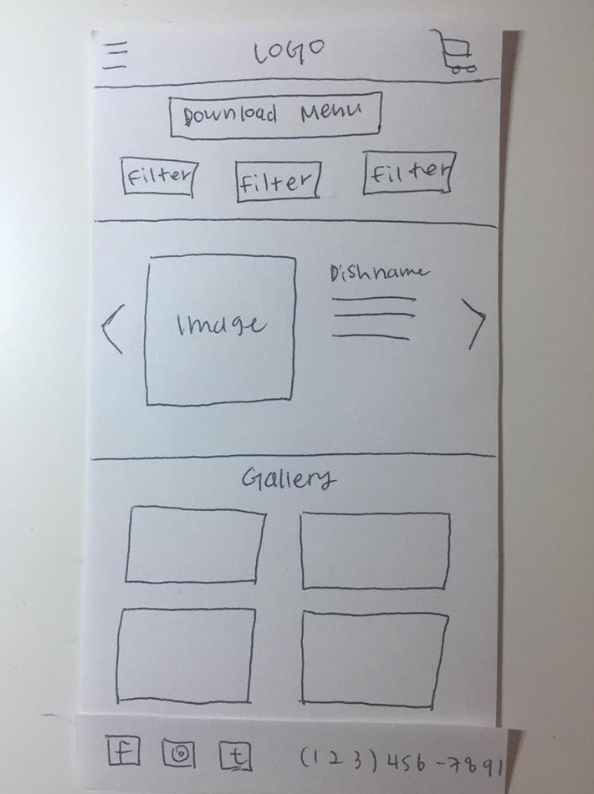 LOGO
Download Menu
Filter Filter Filter
Dishname
Image
Gallery
f t (123)456-7891